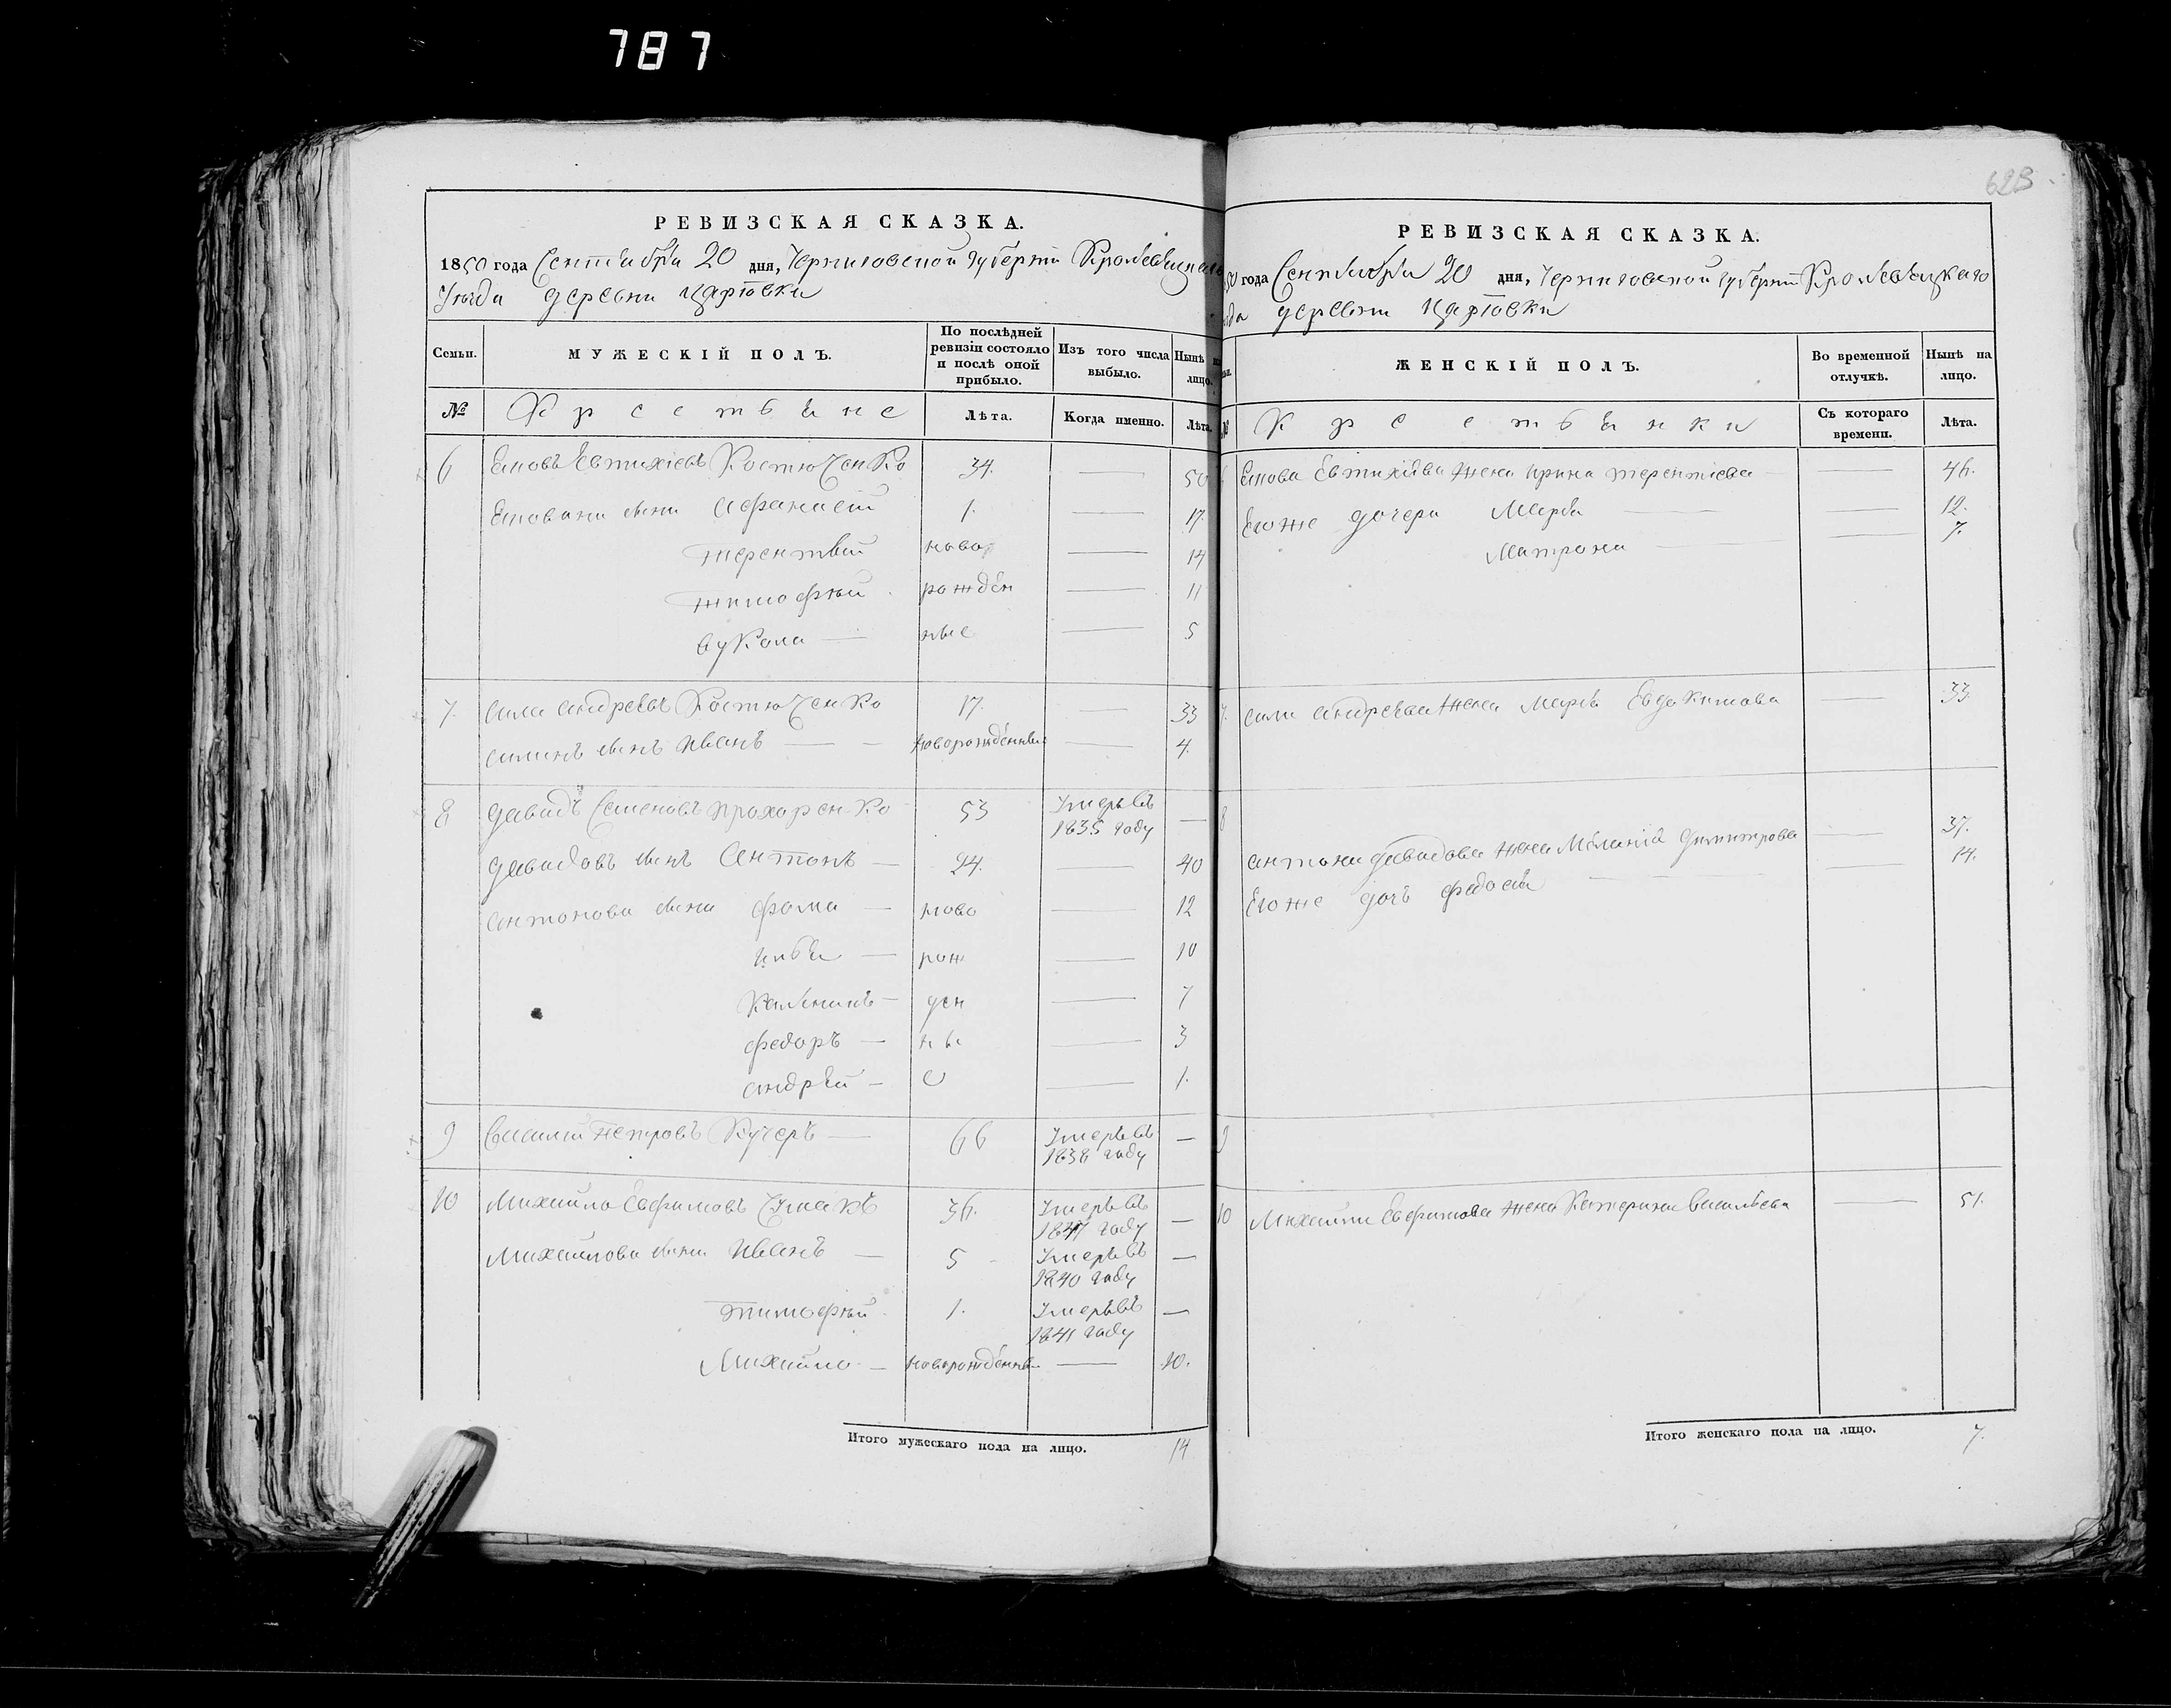 787
РЕВИЗСКАЯ СКАЗКА.
1850 года Сентября 20 дня, Черниговской губерніи Кролевецкаго
Уѣзда деревни Царговки
Семьи. МУЖЕСКІЙ ПОЛЪ. По послѣдней ревизіи состояло и послѣ оной прибыло. Изъ того числа выбыло. Нынѣ на лицо.
№ Крестьяне Лѣта. Когда именно. Лѣта.
6 Евтихіевъ Костюченко 34. — 50
сыни Афанасій 1. — 17.
Терентій ново — 14
Тимофѣй рожден — 11
Вукола — ные — 5
7. Сила Андреевъ Костюченко 17. — 33
Силинъ сынъ Иванъ — — новорожденный — 4.
8 Давидъ Семеновъ Прохоренко 53 Умеръ въ —
1835 году
Давидовъ сынъ Антонъ — 24. — 40
Антонова сыни Фома — ново — 12
Илья — рож — 10
Калиникъ — ден — 7
Федоръ — ны — 3
Андрей — е — 1.
9 Василій Петровъ Кучеръ — 66 Умеръ въ —
1838 году
10 Михайло Евфимовъ Чумакъ 36. Умеръ въ —
1847 году
Михайлова сыни Иванъ — 5 Умеръ въ —
1840 году
Тимофѣй 1. Умеръ въ —
1841 году
Михайло — новорожденны — 10.
Итого мужескаго пола на лицо. 14
623
РЕВИЗСКАЯ СКАЗКА.
50 года Сентября 20 дня, Черниговской губерніи Кролевецкаго
зда деревни Царговки
ЖЕНСКІЙ ПОЛЪ. Во временной отлучкѣ. Нынѣ на лицо.
№ Крестьянки Съ котораго времени. Лѣта.
Евтихіева жена Ирина Терентіева — 46.
Егоже дочери Марья — — 12.
Матрона — — 7.
7. Силы Андреева жена Марья Евдокимова — 33.
8
Антона Давидова жена Меланія Димитрова — 37.
Егоже дочь Федосья — — 14.
9
10 Михайлы Евфимова жена Катерина Васильева — 51.
Итого женскаго пола на лицо. 7.